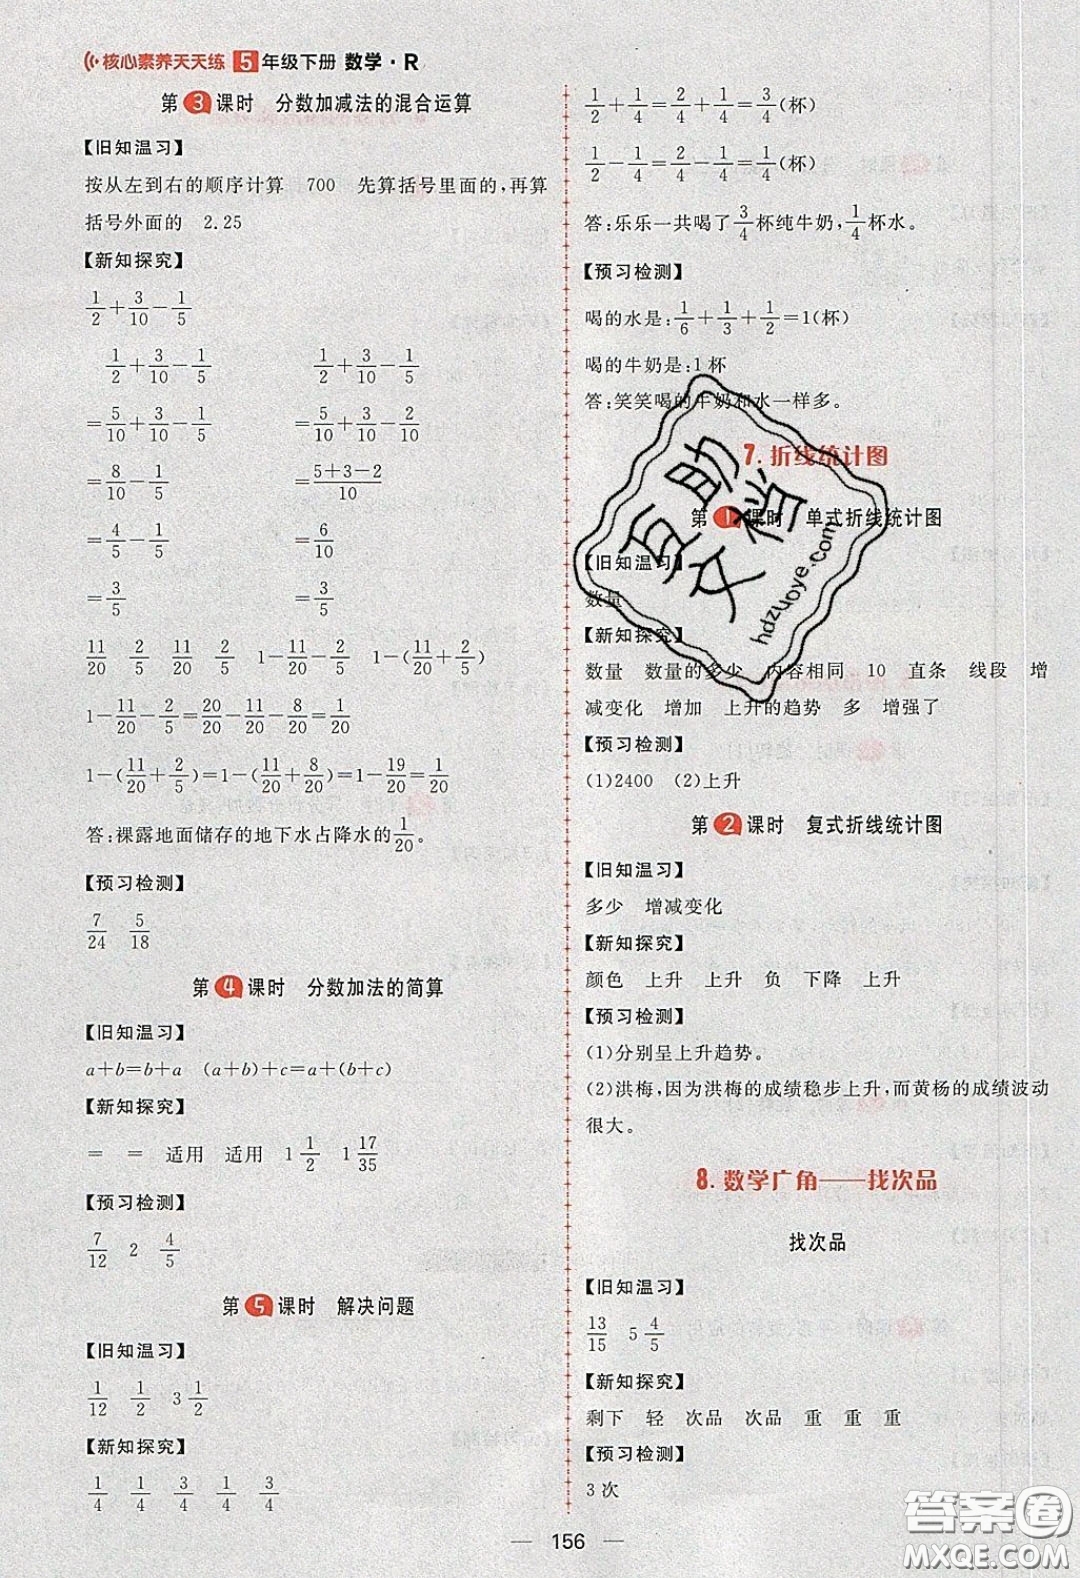 核心素养天天练 5 年级下册 数学·R
第3课时 分数加减法的混合运算
【旧知温习】
按从左到右的顺序计算 700 先算括号里面的,再算
括号外面的 2.25
【新知探究】
1/2+3/10-1/5
1/2+3/10-1/5 1/2+3/10-1/5
=5/10+3/10-1/5 =5/10+3/10-2/10
=8/10-1/5 =(5+3-2)/10
=4/5-1/5 =6/10
=3/5 =3/5
11/20 2/5 11/20 2/5 1-11/20-2/5 1-(11/20+2/5)
1-11/20-2/5=20/20-11/20-8/20=1/20
1-(11/20+2/5)=1-(11/20+8/20)=1-19/20=1/20
答:裸露地面储存的地下水占降水的1/20。
【预习检测】
7/24 5/18
第4课时 分数加法的简算
【旧知温习】
a+b=b+a (a+b)+c=a+(b+c)
【新知探究】
= = 适用 适用 1 1/2 1 17/35
【预习检测】
7/12 2 4/5
第5课时 解决问题
【旧知温习】
1/12 1/2 3 1/2
【新知探究】
1/4 1/4 3/4 1/4 3/4
1/2+1/4=2/4+1/4=3/4(杯)
1/2-1/4=2/4-1/4=1/4(杯)
答:乐乐一共喝了3/4杯纯牛奶,1/4杯水。
【预习检测】
喝的水是:1/6+1/3+1/2=1(杯)
喝的牛奶是:1杯
答:笑笑喝的牛奶和水一样多。
7.折线统计图
第1课时 单式折线统计图
【旧知温习】
数量
【新知探究】
数量 数量的多少 内容相同 10 直条 线段 增
减变化 增加 上升的趋势 多 增强了
【预习检测】
(1)2400 (2)上升
第2课时 复式折线统计图
【旧知温习】
多少 增减变化
【新知探究】
颜色 上升 上升 负 下降 上升
【预习检测】
(1)分别呈上升趋势。
(2)洪梅,因为洪梅的成绩稳步上升,而黄杨的成绩波动
很大。
8.数学广角——找次品
找次品
【旧知温习】
13/15 5 4/5
【新知探究】
剩下 轻 次品 次品 重 重 重
【预习检测】
3次
156
互助文档
hdzuoye.com
答案圈
MXQE.COM